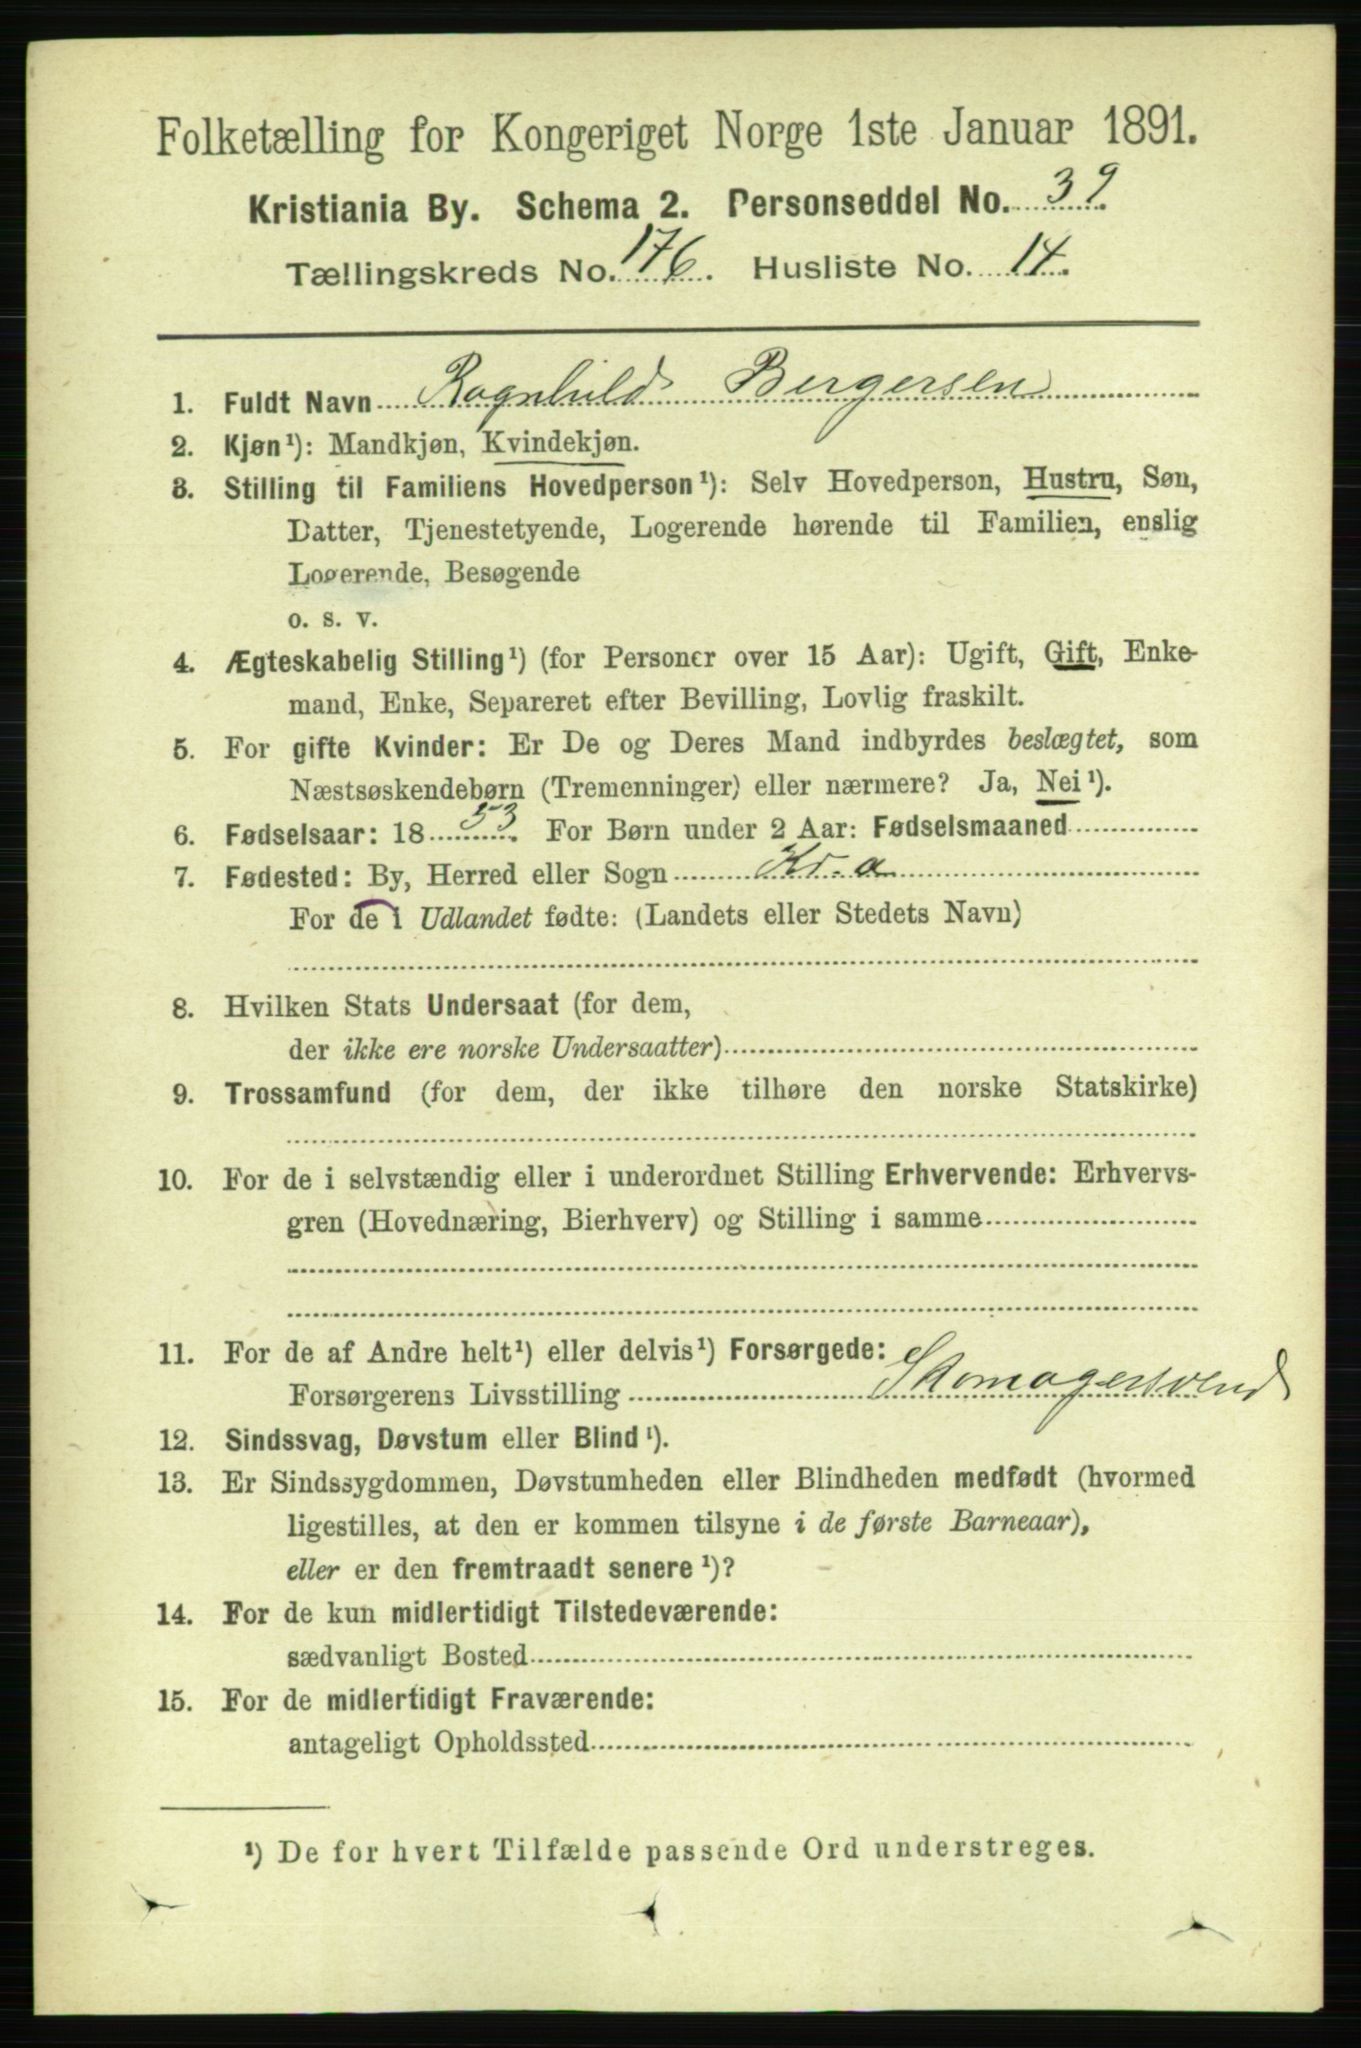 Folketælling for Kongeriget Norge 1ste Januar 1891.
Kristiania By. Schema 2. Personseddel No. 39.
Tællingskreds No. 176. Husliste No. 14.
1. Fuldt Navn Ragnhild Bergersen
2. Kjøn¹): Mandkjøn, Kvindekjøn.
3. Stilling til Familiens Hovedperson¹): Selv Hovedperson, Hustru, Søn,
Datter, Tjenestetyende, Logerende hørende til Familien, enslig
Logerende, Besøgende
o. s. v.
4. Ægteskabelig Stilling¹) (for Personer over 15 Aar): Ugift, Gift, Enke-
mand, Enke, Separeret efter Bevilling, Lovlig fraskilt.
5. For gifte Kvinder: Er De og Deres Mand indbyrdes beslægtet, som
Næstsøskendebørn (Tremenninger) eller nærmere? Ja, Nei¹).
6. Fødselsaar: 1853. For Børn under 2 Aar: Fødselsmaaned
7. Fødested: By, Herred eller Sogn Kr.a
For de i Udlandet fødte: (Landets eller Stedets Navn)
8. Hvilken Stats Undersaat (for dem,
der ikke ere norske Undersaatter)
9. Trossamfund (for dem, der ikke tilhøre den norske Statskirke)
10. For de i selvstændig eller i underordnet Stilling Erhvervende: Erhvervs-
gren (Hovednæring, Bierhverv) og Stilling i samme
11. For de af Andre helt¹) eller delvis¹) Forsørgede:
Forsørgerens Livsstilling Skomagersvend
12. Sindssvag, Døvstum eller Blind¹).
13. Er Sindssygdommen, Døvstumheden eller Blindheden medfødt (hvormed
ligestilles, at den er kommen tilsyne i de første Barneaar),
eller er den fremtraadt senere¹)?
14. For de kun midlertidigt Tilstedeværende:
sædvanligt Bosted
15. For de midlertidigt Fraværende:
antageligt Opholdssted
¹) De for hvert Tilfælde passende Ord understreges.